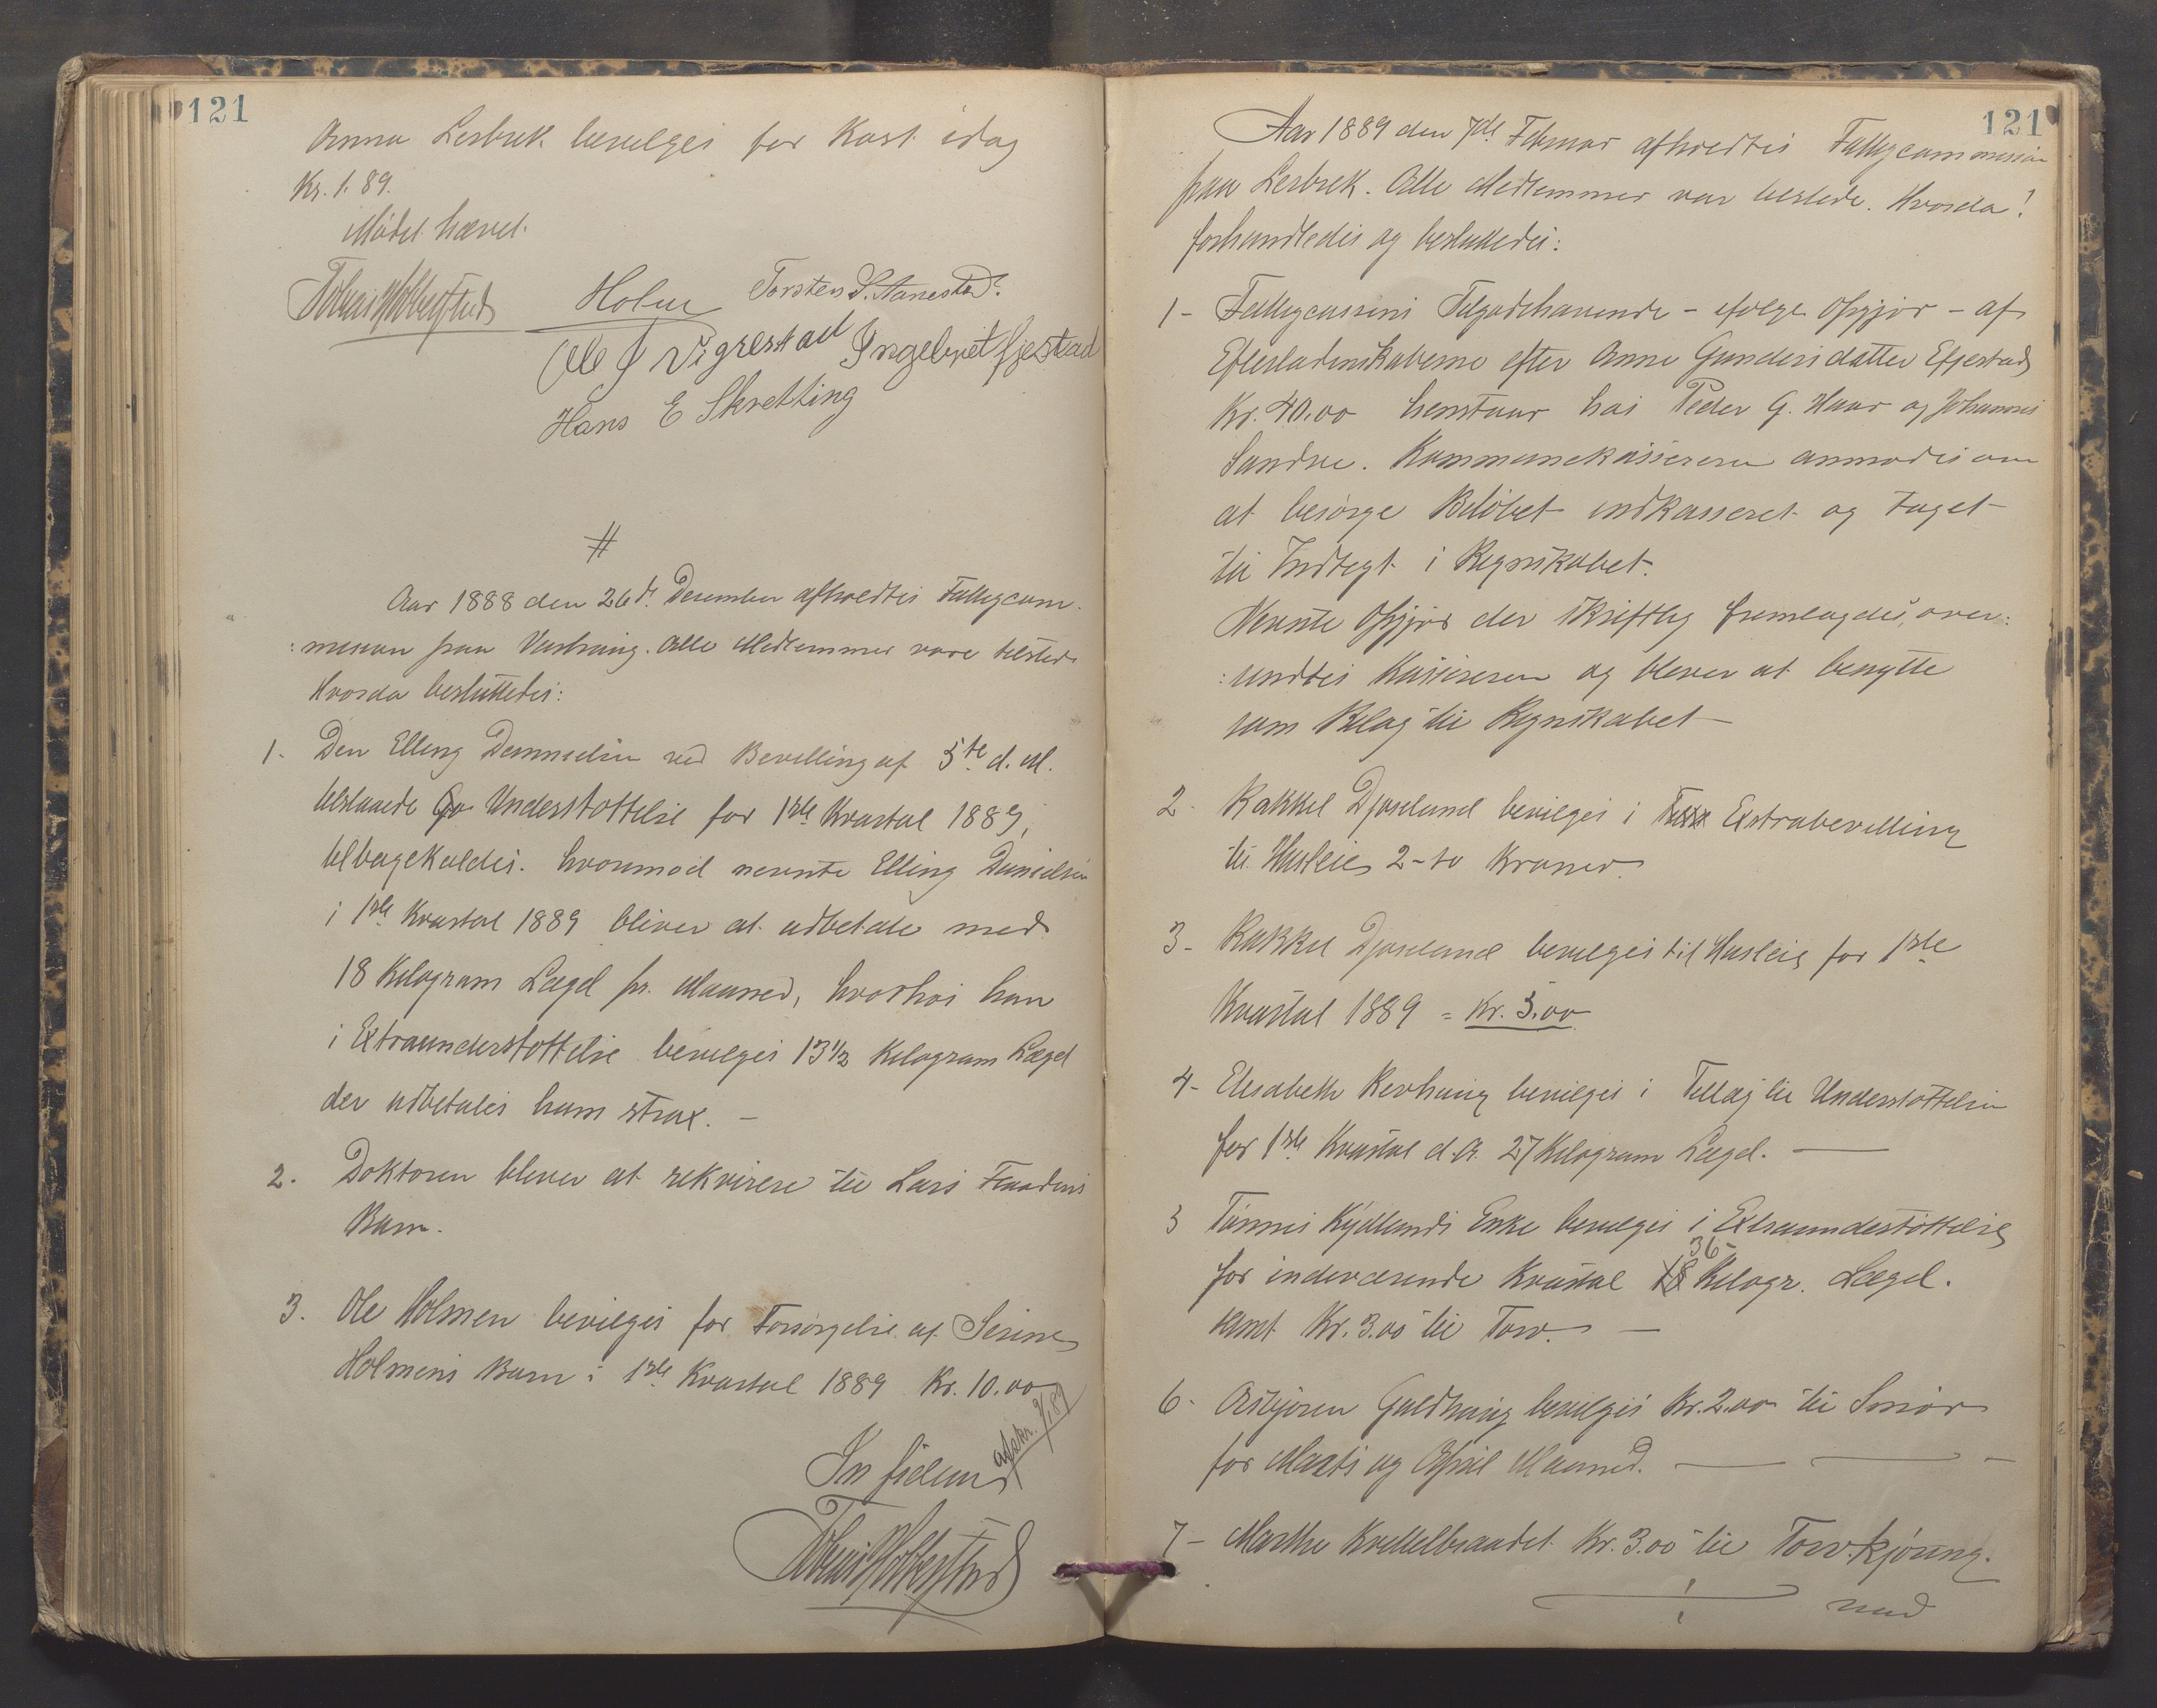 121
Anna Lerbrek bevilges for Kost idag
Kr. 1.89.
Mødet hævet.
Holm Torsten S. Aanestad.
Ole J Vigrestad Ingebret Efjestad
Hans E Skretting
#
Aar 1888 den 26de December afholdtes Fattigcom-
:mission paa Varhaug. Alle Medlemmer vare tilstede
Hvorda besluttedes:
1. Den Elling Danielsen ved Bevilling af 5te d.M.
tilstaaede Understøttelse for 1ste Kvartal 1889,
tilbagekaldes. hvorimod nevnte Elling Danielsen
i 1ste Kvartal 1889 bliver at udbetale med
18 Kilogram Lægd pr. Maaned, hvorhos han
i Extraunderstøttelse bevilges 13 1/2 Kilogram Lægd
der udbetales ham strax. –
2. Doktoren bliver at rekvirere til Lars
Barn.
3. Ole Holmen bevilges for Forsørgelse af Serine
Holmens Barn i 1ste Kvartal 1889 Kr. 10.00
afskr. 9/1 89
In fidem
121
Aar 1889 den 7de Februar afholdtes Fattigcommission
paa Lerbrek. Alle Medlemmer var tilstede. Hvorda!
forhandledes og besluttedes:
1 - Fattigcassens Tilgodehavende – ifølge Opgjør – af
Efterladenskaberne efter Anne Gundersdatter Efjestad
Kr. 40.00 henstaar hos Peder G. Haar og Johannes
Sandve. Kommunekassereren anmodes om
at besørge Beløbet indkasseret og taget
til Indtegt i Regnskabet.
Nevnte Opgjør der skriftlig fremlagdes, over:
:sendtes Kassereren og bliver at benytte
som Bilag til Regnskabet –
2. Rakkel Djuseland bevilges i Extrabevilling
til Husleie 2 - to Kroner.
3 - Rakkel Djuseland bevilges til Husleie for 1ste
Kvartal 1889 = Kr. 5.00
4 - Elisabeth Revhaug bevilges i Tillæg til Understøttelsen
for 1ste Kvartal d.A. 27 Kilogram Lægd. —
5 Tønnes Kydlands Enke bevilges i Extraunderstøttelse
for indeværende Kvartal 18 36 - Kilogr. Lægd.
samt Kr. 3.00 til Torv. —
6. Asbjøren Guldhaug bevilges Kr. 2.00 til Smør
for Marts og April Maaned. — — –
7 - Marthe Kvellebrandet Kr. 3.00 til Torvkjøring.